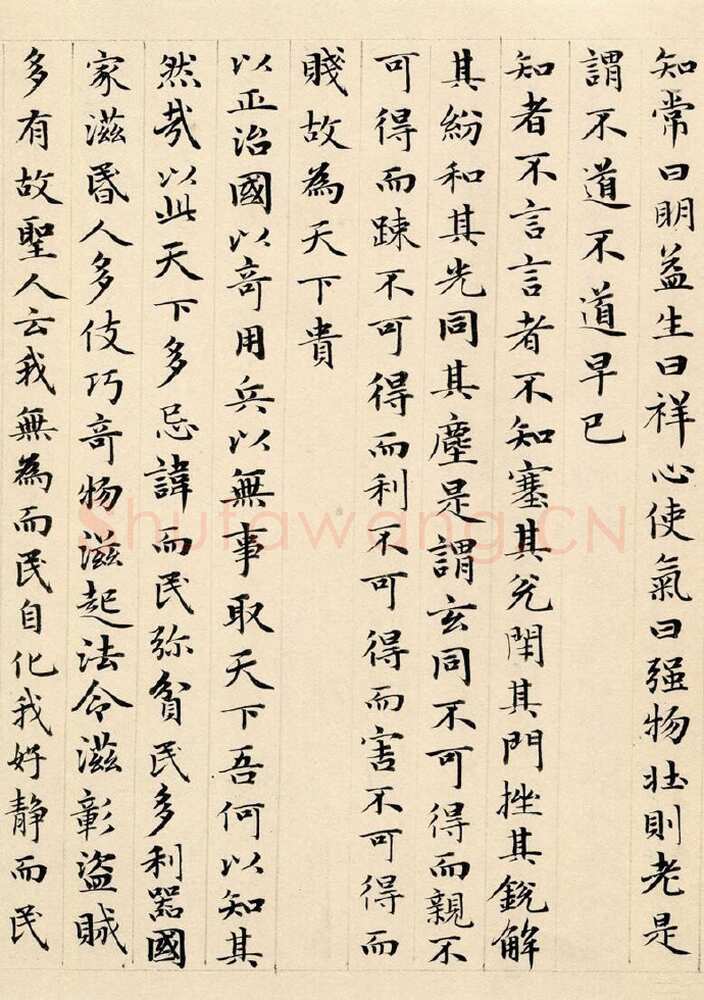 知常曰明益生曰祥心使氣曰强物壯則老是
謂不道不道早已
知者不言言者不知塞其兊閇其門挫其銳解
其紛和其光同其塵是謂玄同不可得而親不
可得而踈不可得而利不可得而害不可得而
賤故為天下貴
以正治國以竒用兵以無事取天下吾何以知其
然㢤以此天下多忌諱而民弥貧民多利器國
家滋昬人多伎巧竒物滋起法令滋彰盜賊
多有故聖人云我無為而民自化我好静而民
Shufawang.CN